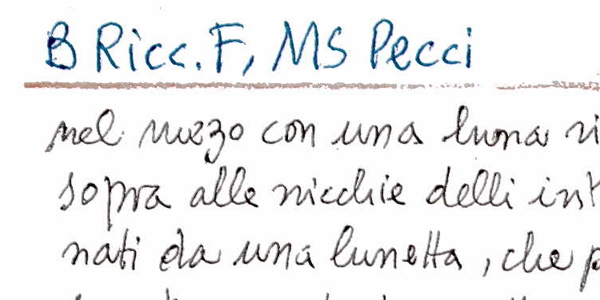 B Ricc. F, MS Pecci
nel mezzo con una luna ri
sopra alle nicchie delli int
nati da una lunetta, che p